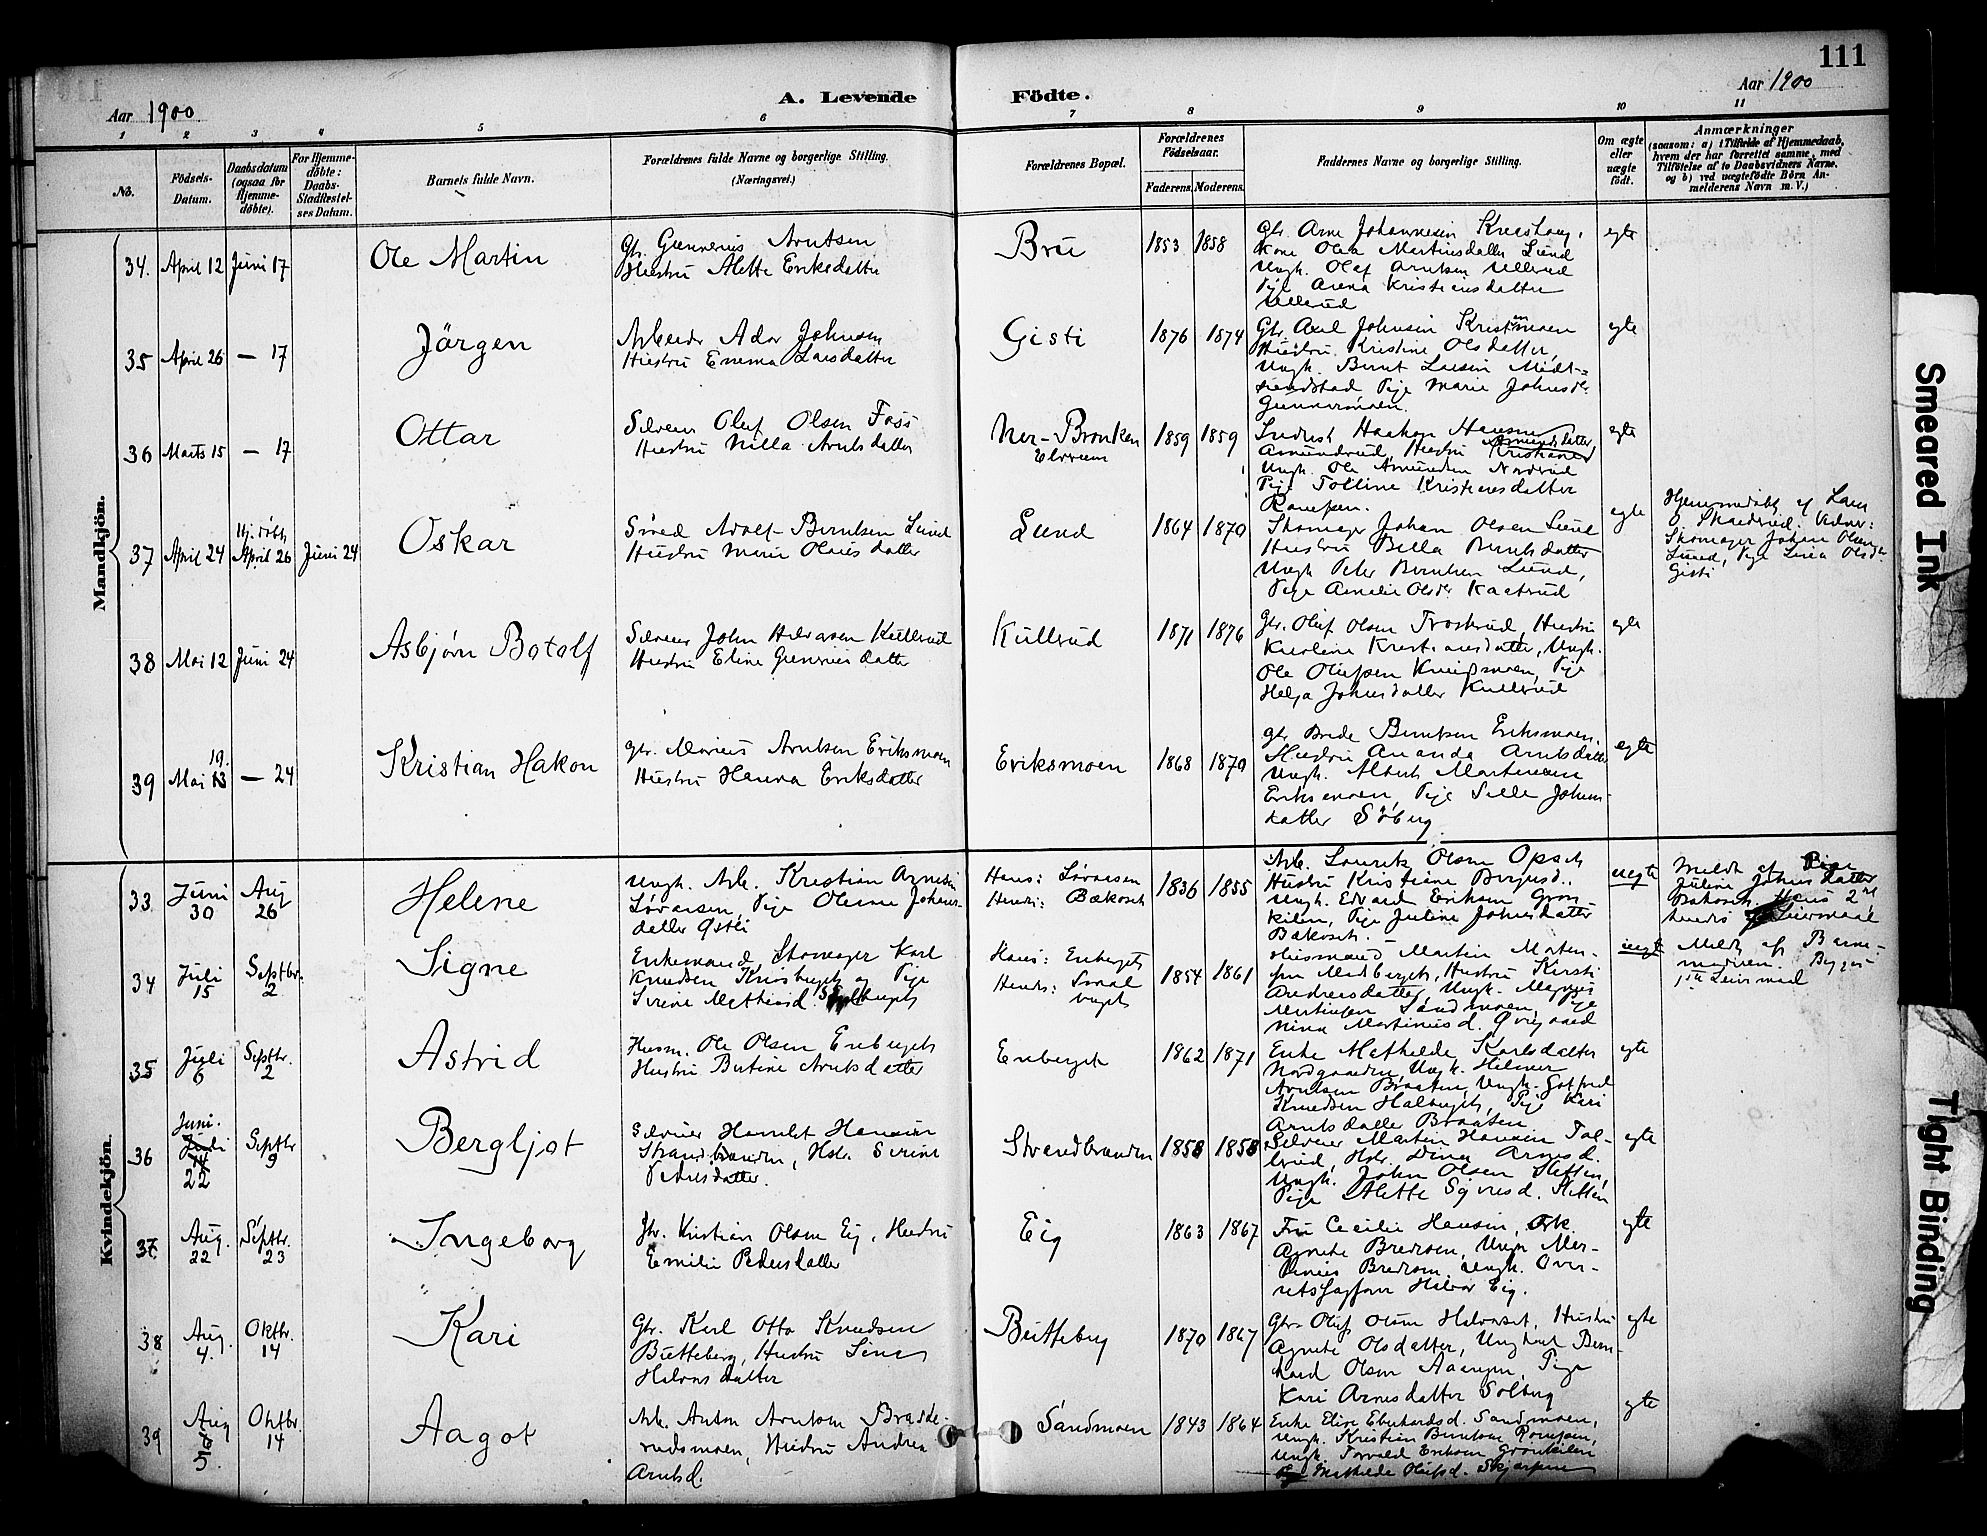 111
Aar 1900
A. Levende Födte.
Aar 1900
1 2 3 4 5 6 7 8 9 10 11
No.
Födsels-Datum.
Daabsdatum (ogsaa for Hjemme-döbte).
For Hjemme-döbte: Daabs-Stadfæstel-ses Datum.
Barnets fulde Navn.
Forældrenes fulde Navne og borgerlige Stilling.
(Næringsvei.)
Forældrenes Bopæl.
Forældrenes Födselsaar.
Faderens. Moderens.
Faddernes Navne og borgerlige Stilling.
Om ægte eller uægte født.
Anmærkninger
(saasom: a) i Tilfælde af Hjemmedaab, hvem der har forrettet samme, med Tilföielse af to Daabsvidners Navne, og b) ved uægtefödte Börn An-melderens Navn m. V.)
Mandkjön.
34. April 12 Juni 17 Ole Martin
Gbr. Gunnerius Arntsen
Hustru Alette Eriksdatter
Bru 1853 1858
Gbr. Arne Johannesen
Kone Olea Martinsdatter Lund
Ungk. Olaf Arntsen Ullerud
Pige Arena Kristiansdatter
Ullerud
egte
35 April 26 — 17 Jörgen
Arbeider Ador Johnsen
Hustru Emma Larsdatter
Gisti 1876 1874
Gbr. Axel Johnsen
Hustru Kristine Olsdatter,
Ungk. Bernt Larsen Midt-
sundstad Pige Marie Johnsdr
Gunnersmoen.
egte
36 Marts 15 — 17 Ottar
Selveier Oluf Olsen Foss
Hustru Nilla Arntsdatter
Ner-Bronken
Elverum
1859 1859
Haakon Hansen
Amundsrud, Hustru Kristiane
Amundsdatter,
Ungk. Ole Amundsen Nordrud
Pige Tolline Kristiansdatter
egte
37 April 24 Hj. døbt April 26 Juni 24 Oskar
Smed Adolf Berntsen Lund
Hustru Marie Olausdatter
Lund 1864 1870
Skomager Johan Olsen Lund
Hustru Berntsdatter
Ungk Peter Berntsen Lund,
Pige Amalie Olsdr Kaatrud
egte
Hjemmedøbt af Lars
O. Skaderud. Vidner:
Skomager Johan Olsen
Lund, Pige Lina Olsdr.
Gisti
38 Mai 12 Juni 24 Asbjørn Botolf
Selveier John Halvorsen Kullerud
Hustru Eline Gunneriusdatter
Kullrud 1871 1876
Gbr. Oluf Olsen Troskrud, Hustru
Karoline Kristiansdatter, Ungk.
Ole Olufsen Pige
Helga Johnsdatter Kullerud
egte
39 Mai 13 19. — 24 Kristian Hakon
Gbr. Marius Arntsen Eriksmoen
Hustru Hanna Eriksdatter
Eriksmoen 1868 1870
Gbr Brede Berntsen Eriksmoen.
Hustru Ananda Arntsdatter
Ungk. Albert Martinsen
Eriksmoen, Pige Sille Johans-
datter Søberg
egte
Kvindekjön.
33 Juni 30 Aug 26 Helene
Ungk. Arb. Kristian Arnesen
Søraasen, Pige Oleane Johans-
datter Østli
Hans: Søraasen
Hendes: Bakoset
1836 1855
Arb. Lauritz Olsen Opset
Hustru Kristiane
Ungk. Edvard Eriksen Grøn-
kilen, Pige Juline Johnsdatter
Bakoset.
uegte
Meldt af Pige
Juline Johnsdatter
Bakoset. Hans 2det
hendes Leiermaal
34 Juli 15 Septbr. 2 Signe
Enkemand, Skomager Karl
Knudsen og Pige
Serine Mathiasd.
Hans: Enberget
Hendes:
1854 1861
Husmand Martin Morten-
sen Hustru Kirsti
Andreasdatter, Ungk. Magnus
Martinsen Sandmoen, Pige
Nina Martiniusd.
uegte
Meldt af Barne-
moderen. Begges
1ste Leiermaal
35 Juli 6 Septbr. 2 Astrid
Husm. Ole Olsen Enberget
Hustru Betine Arntsdatter
Enberget 1862 1871
Enke Mathilde Karlsdatter
Nordgaarden, Ungk. Hilmar
Arntsen Braaten, Ungk. Gotfred
Knudsen Halberget, Pige Kari
Arntsdatter Braaten
egte
36 Juni 22 Septbr 9 Bergljot
Selveier Hansen
Strandbraaden, Hstr. Serine
Pedersdatter.
Strandbraaden 1858 1858
Selveier Martin Hansen Tol-
lerud, Hstr. Dina Arnesd.
Ungk. Johan Olsen Sletten,
Pige Alette Syversd. Sletten
egte
37 Aug. 22 Septbr. 23 Ingeborg
Gbr. Kristian Olsen Eig, Hustru
Emilie Pedersdatter
Eig 1863 1867
Fru Cecilie Hansen, Frk.
Agnete Bredesen, Ungk
Bredesen, Ungk. Over-
retssagfører Halvor Eig.
egte
38 Aug. 4. Oktbr. 14 Kari
Gbr. Karl Otto Knudsen
Butteberg, Hustru Lina
Halvorsdatter
Butteberg 1870 1867
Gbr. Oluf Olsen Halvorset, Hustru
Agnete Olsdatter, Ungkarl Bern-
hard Olsen Aaengen, Pige
Kari Arnesdatter Solberg
egte
39 Aug 5 Oktbr. 14 Aagot
Arb. Anton Arntsen Bradde-
rudsmoen, Hustru Andrea
Arntsd.
Sandmoen 1843 1864
Enke Elise Eberhardsd. Sandmoen,
Ungk. Kristian Berntsen
Ungk. Torvald Eriksen Grønkilen
Pige Mathilde Olufsd.
egte
Smeared Ink
Tight Binding